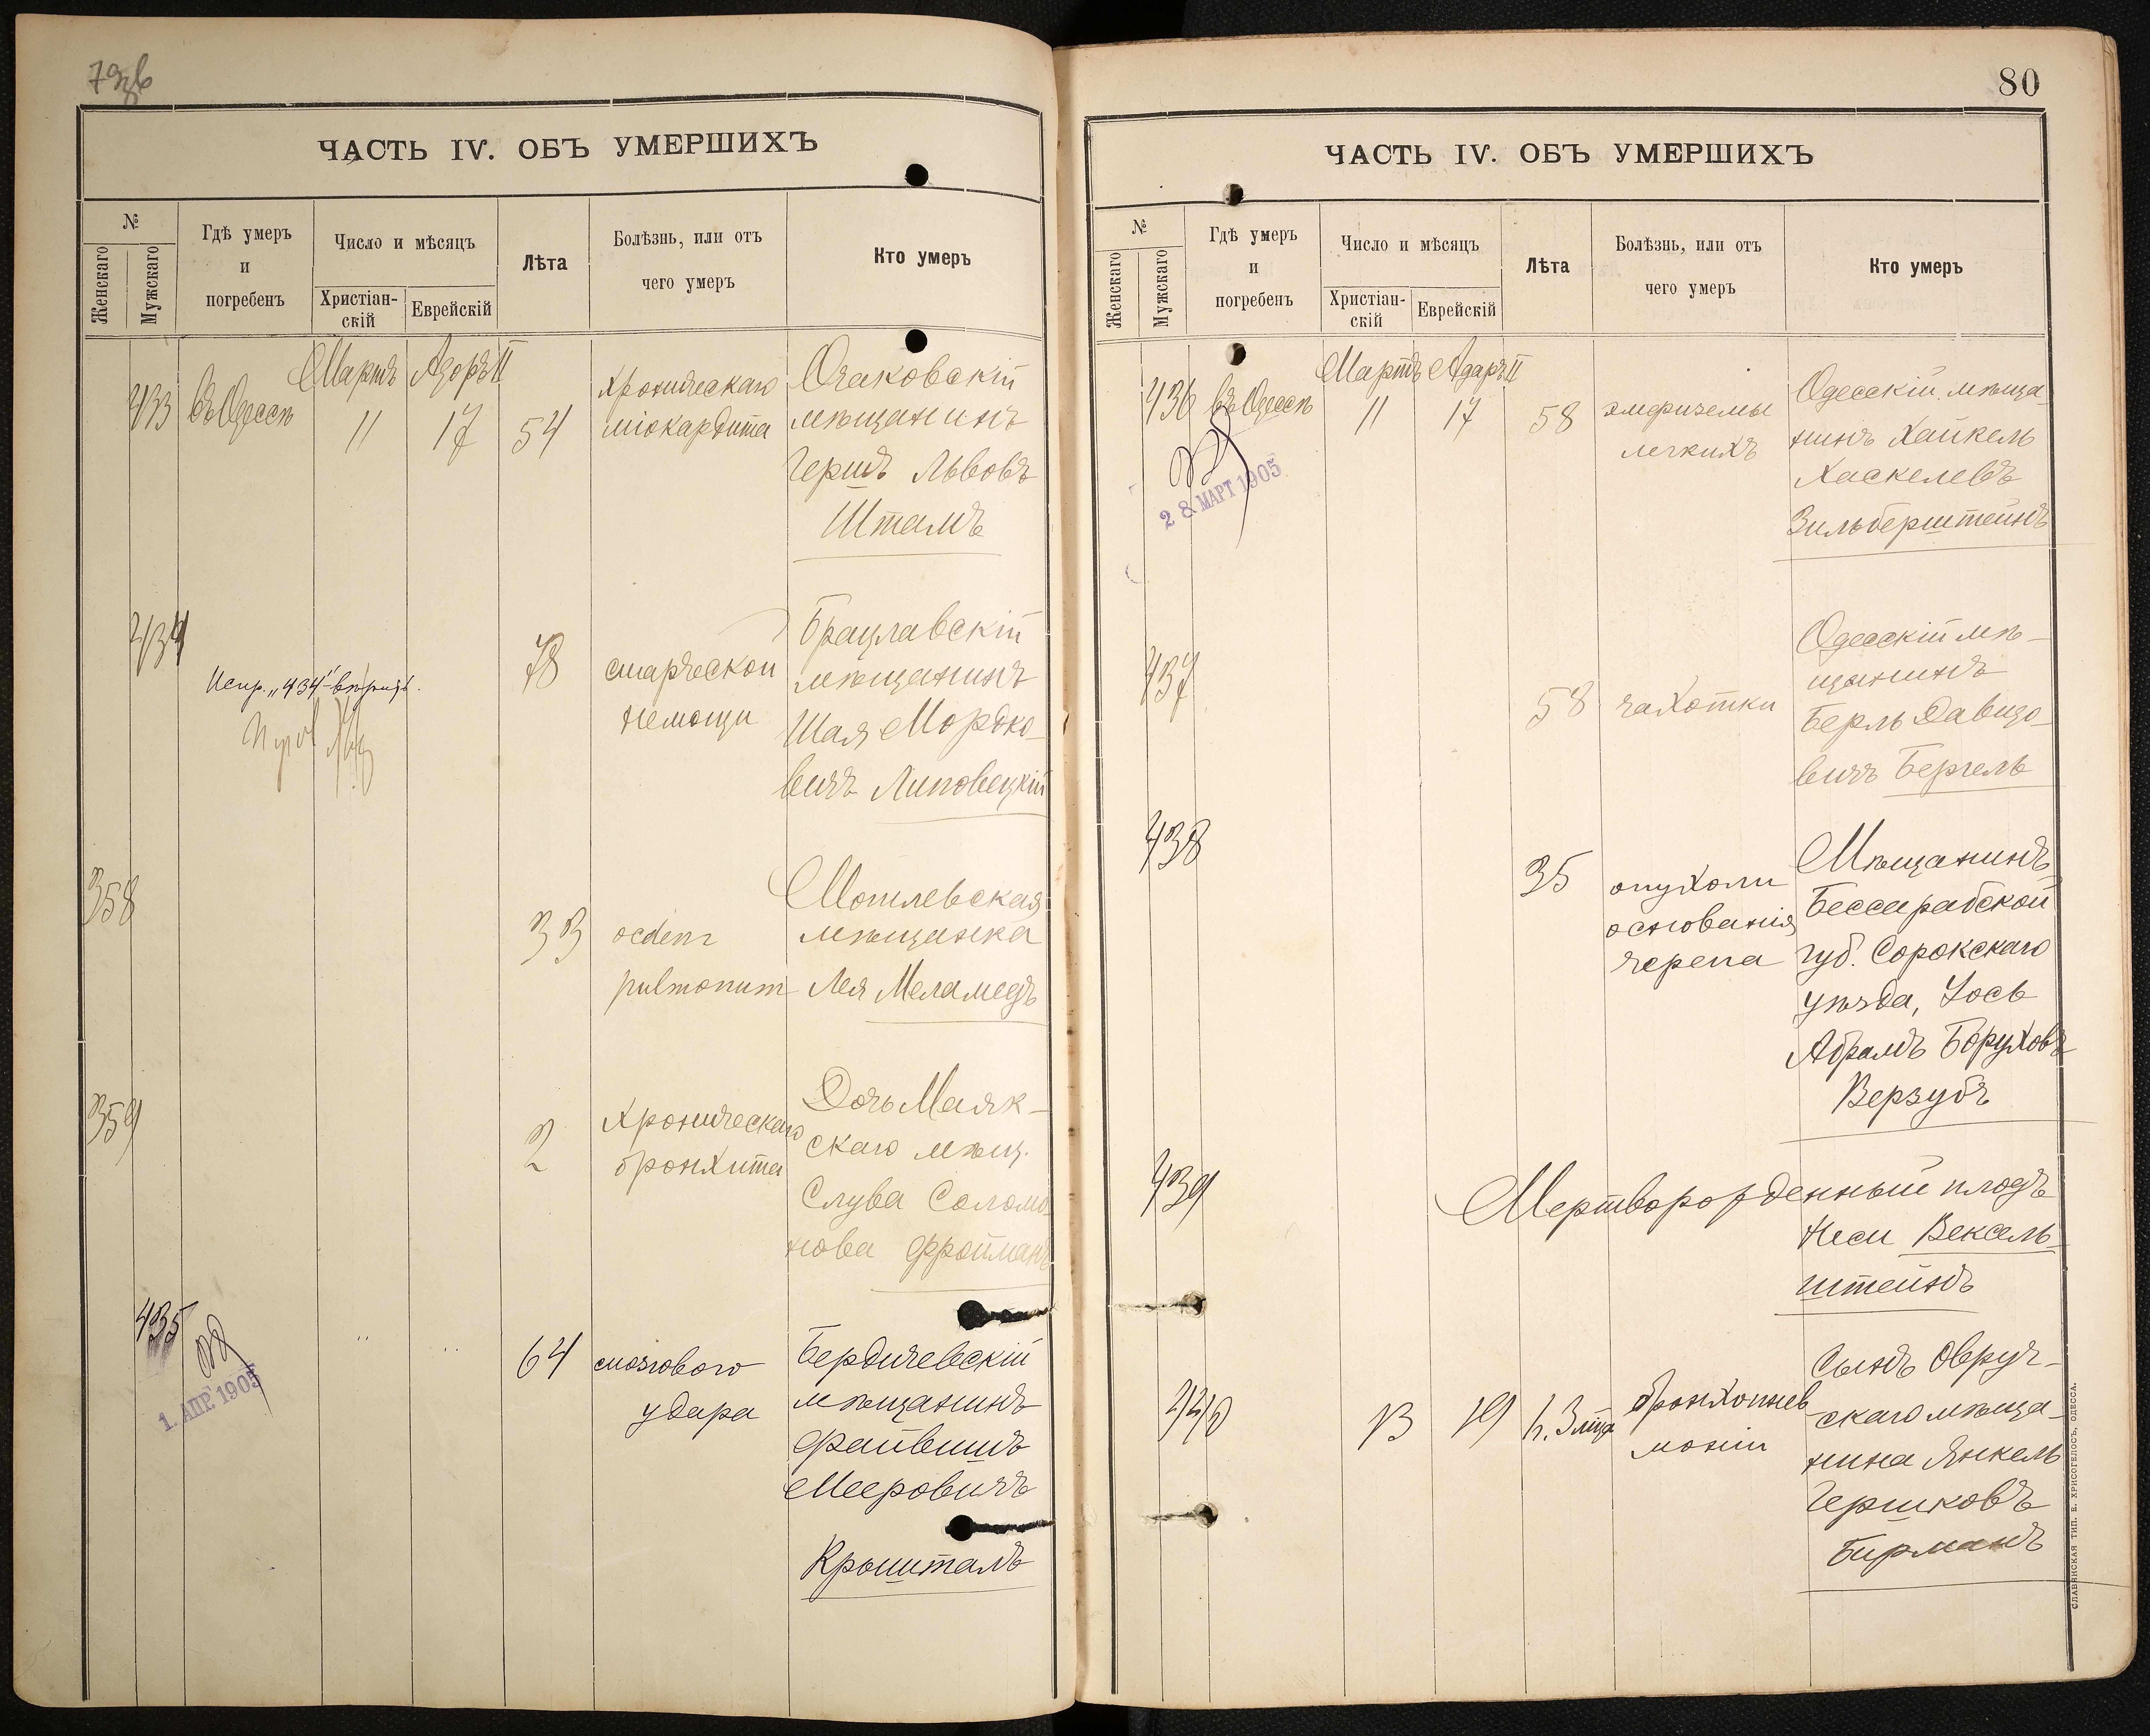 ЧАСТЬ IV. ОБЪ УМЕРШИХЪ
№
Женскаго
Мужскаго
Гдѣ умеръ
и
погребенъ
Число и мѣсяцъ
Христіан-
скій
Еврейскій
Лѣта
Болѣзнь, или отъ
чего умеръ
Кто умеръ
Мартъ Адаръ II
433 въ Одессѣ 11 17 54
хроническаго
міокардита
Очаковскій
мѣщанинъ
Гершъ Львовъ
Штамъ
434
Испр. „434“ вѣрить.
78
старческой
немощи
Брацлавскій
мѣщанинъ
Шая Мордко-
вичъ Липовецкій
358
33
oedem
pulmonum
Могилевская
мѣщанка
Лея Меламедъ
359
2
Хроническаго
бронхита
Дочь Маяк-
скаго мѣщ.
Слува Соломо-
нова Фройманъ
435
1. АПР 1905
64
мозгового
удара
Бердичевскій
мѣщанинъ
Файвишъ
Мееровичъ
Кроншталъ
80
ЧАСТЬ IV. ОБЪ УМЕРШИХЪ
№
Женскаго
Мужскаго
Гдѣ умеръ
и
погребенъ
Число и мѣсяцъ
Христіан-
скій
Еврейскій
Лѣта
Болѣзнь, или отъ
чего умеръ
Кто умеръ
Мартъ Адаръ II
436 въ Одессѣ 11 17 58
28 МАРТ 1905
эмфиземы
легкихъ
Одесскій мѣща-
нинъ Хайкель
Хаскелевъ
Зильберштейнъ
437
58 чахотки
Одесскій мѣ-
щанинъ
Берль Давидо-
вичъ Бергель
438
35
опухоли
основанія
черепа
Мѣщанинъ
Бессарабской
губ. Сорокскаго
уѣзда, Іось
Абрамъ Боруховъ
Верзубъ
439
Мертворожденный плодъ
Неси Вексель-
штейнъ
440 13 19 3 мѣсяца
бронхопнев-
моніи
Сынъ Овруч-
скаго мѣща-
нина Янкель
Гершковъ
Бирманъ
СЛАВЯНСКАЯ ТИП. Е. ХРИСОГЕЛОСЪ, ОДЕССА.